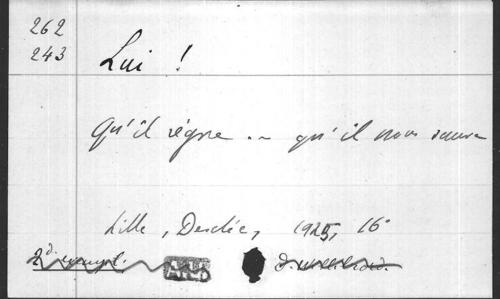 262
243
Lui !
Qu'il règne .. qu'il nous sauve
Lille, Desclée, 1925, 16°
2d exempl.